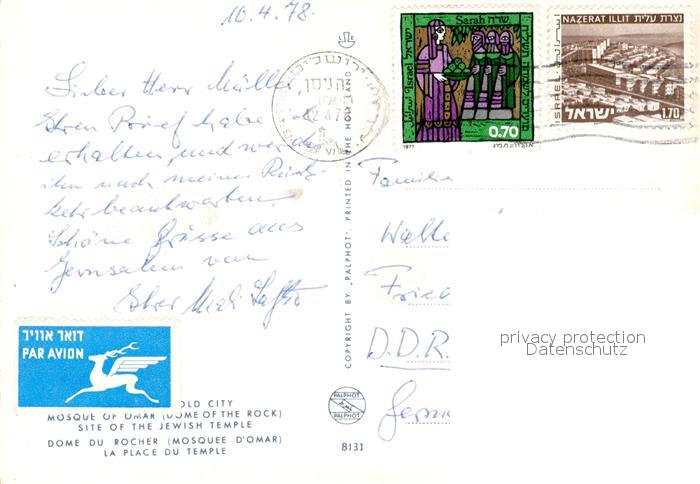 10.4.78.
Lieber Herr Müller,
Ihren Brief habe ich
erhalten und werde
ihn nach meiner Rück-
kehr beantworten.
Schöne Grüsse aus
Jerusalem von
Sarah שרה
ישראל Israel
0.70
1977
NAZERAT ILLIT נצרת עלית
ISRAEL
ישראל 1.70
Familie
D.D.R.
privacy protection
Datenschutz
COPYRIGHT BY "PALPHOT" PRINTED IN THE HOLY LAND
דואר אוויר
PAR AVION
OLD CITY
MOSQUE OF OMAR (DOME OF THE ROCK)
SITE OF THE JEWISH TEMPLE
DOME DU ROCHER (MOSQUEE D'OMAR)
LA PLACE DU TEMPLE
PALPHOT
PALPHOT
8131